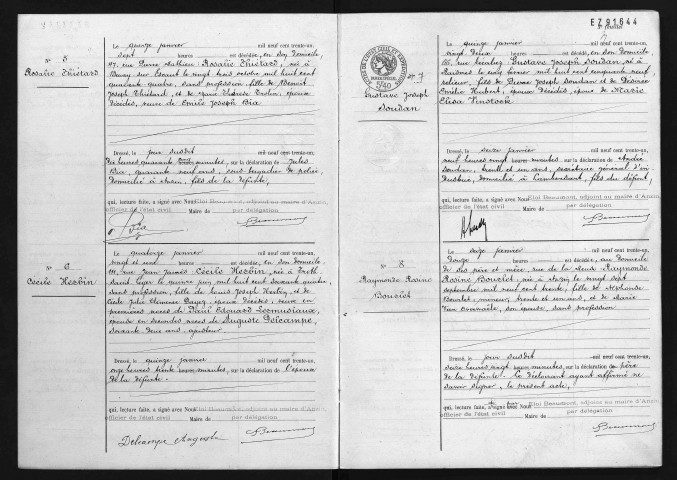 N° 5
Rosalie Thiétard
Le quinze janvier mil neuf cent trente-un,
sept heures est décédée, en son domicile,
117, rue Pierre Mathieu : Rosalie Thiétard, née à
Bruay sur Escaut le vingt trois octobre mil huit cent
quarante quatre, sans profession, fille de Benoit
Joseph Thiétard, et de Marie Thérèse, époux
décédés, veuve de Emile Joseph Bia
Dressé, le jour susdit mil neuf cent trente-un,
dix heures quarante minutes, sur la déclaration de Jules
Bia, quarante neuf ans, sous-brigadier de police,
domicilié à Anzin, fils de la défunte,
qui, lecture faite, a signé avec Nous Eloi Beaumont, adjoint au maire d'Anzin
officier de l'état civil Maire de par délégation
Bia
Beaumont
N° 6
Cécile Herbin
Le quatorze janvier mil neuf cent trente-un,
vingt et une heures est décédée, en son domicile
111, rue Jean Jaurès : Cécile Herbin, née à Trith
Saint Léger le quinze juin mil huit cent soixante quatre,
sans profession, fille de Louis Joseph Herbin, et de
Cécile Julie Clémence, époux décédés, veuve en
premières noces de Paul Edouard Lecmusiaux,
épouse en secondes noces de Auguste Delcampe,
soixante deux ans, ajusteur
Dressé, le quinze janvier mil neuf cent trente-un,
onze heures trente minutes, sur la déclaration de l'époux
de la défunte.
qui, lecture faite, a signé avec Nous Eloi Beaumont, adjoint au maire d'Anzin
officier de l'état civil Maire de par délégation
Delcampe Auguste
Beaumont
EZ91644
feuillet
N° 7
Gustave Joseph
Soudan
Le quinze janvier mil neuf cent trente-un,
vingt deux heures est décédé, en son domicile,
rue : Gustave Joseph Soudan, né à
Raismes le cinq février mil huit cent cinquante neuf,
retiré, fils de Pierre Joseph Soudan et de Désirée
Emélie Hubert, époux décédés, époux de Marie
Elisa Vinstock
Dressé, le seize janvier mil neuf cent trente-un,
neuf heures vingt minutes, sur la déclaration de André
Soudan, trente et un ans, secrétaire général d'in-
dustrie, domicilié à Lambersart, fils du défunt,
qui, lecture faite, a signé avec Nous Eloi Beaumont, adjoint au maire d'Anzin
officier de l'état civil Maire de par délégation
Beaumont
N° 8
Raymonde Rosine
Bourlet
Le seize janvier mil neuf cent trente-un,
douze heures est décédée, au domicile
de ses père et mère, rue de la : Raymonde
Rosine Bourlet, née à Anzin le vingt sept
septembre mil neuf cent trente, fille de
Bourlet, mineur, trente et un ans, et de Marie
son épouse, sans profession
Dressé, le jour susdit mil neuf cent trente-un,
seize heures vingt minutes, sur la déclaration du père
de la défunte. Le déclarant ayant affirmé ne
savoir signer, le présent acte,
qui, lecture faite, a signé par Nous Eloi Beaumont, adjoint au maire d'Anzin
officier de l'état civil Maire de par délégation
Beaumont